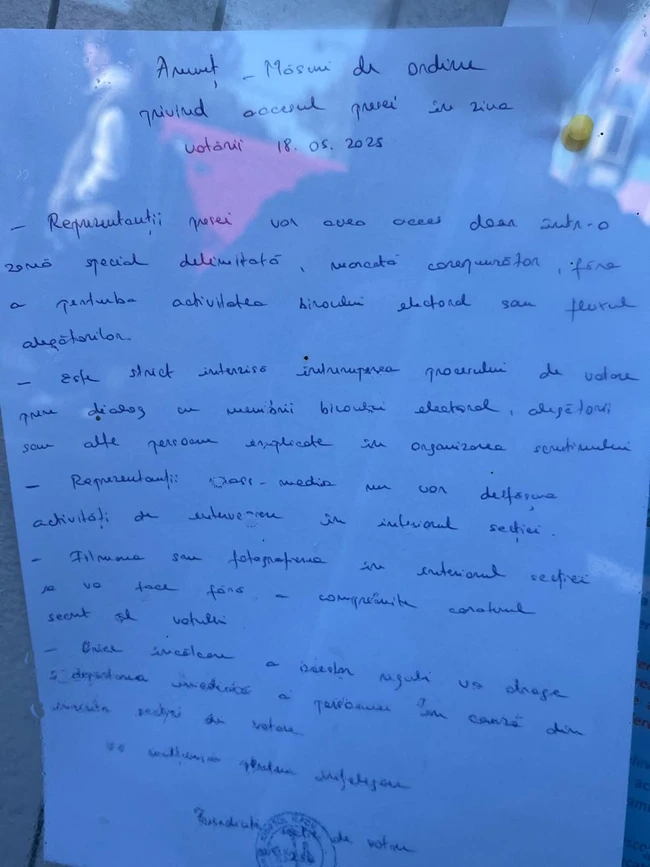 Anunț - Măsuri de ordine
privind accesul presei în ziua
votării 18.05.2025
- Reprezentanții presei vor avea acces doar într-o
zonă special delimitată, marcată corespunzător, fără
a perturba activitatea biroului electoral sau fluxul
alegătorilor.
- Este strict interzisă întreruperea procesului de votare
prin dialog cu membrii biroului electoral, alegătorii
sau alte persoane implicate în organizarea scrutinului
- Reprezentanții mass-media nu vor desfășura
activități de intervievare în interiorul secției.
- Filmarea sau fotografierea în interiorul secției
se va face fără a compromite caracterul
secret al votului.
- Orice încălcare a acestor reguli va atrage
îndepărtarea imediată a persoanei în cauză din
incinta secției de votare.
Vă mulțumim pentru înțelegere
secție de votare